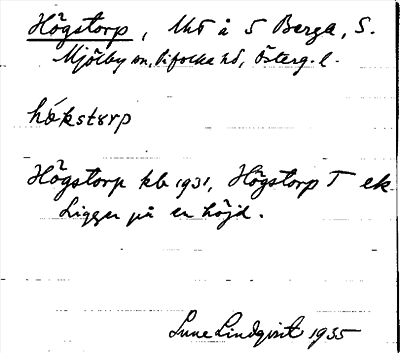 Högstorp, Uht å S Berga, S.
Mjölby sn, Vifolka hd, Österg. l.
hökstorp
Högstorp kb 1931, Högstorp T ek
Ligger på en höjd.
Sune Lindqvist 1935